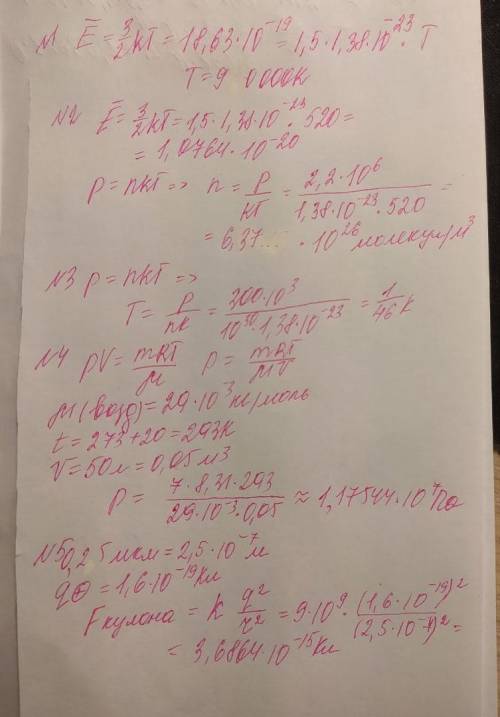 N1 E̅ = 3/2 kT = 18,63·10⁻¹⁹ = 1,5·1,38·10⁻²³·T
T = 9 0000K
N2 E̅ = 3/2 kT = 1,5·1,38·10⁻²³·520 =
= 1,0764·10⁻²⁰
p = nkT => n = p/kT = 2,2·10⁶/1,38·10⁻²³·520 =
= 6,37 · 10²⁶ молекул/м³
N3 p = nkT =>
T = p/nk = 200·10³/10³⁰·1,38·10⁻²³ = 1/46 K
N4 pV = mRT/μ p = mRT/μV
μ(возд) = 29·10⁻³ кг/моль
t = 273+20 = 293K
V = 50л = 0,05 м³
P = 7·8,31·293/29·10⁻³·0,05 ≈ 1,17544·10⁷Па
N5 0,25 мкм = 2,5·10⁻⁷м
qө = 1,6·10⁻¹⁹Кл
Fкулона = k q²/r² = 9·10⁹·(1,6·10⁻¹⁹)²/(2,5·10⁻⁷)² =
= 3,6864·10⁻¹⁵Кл